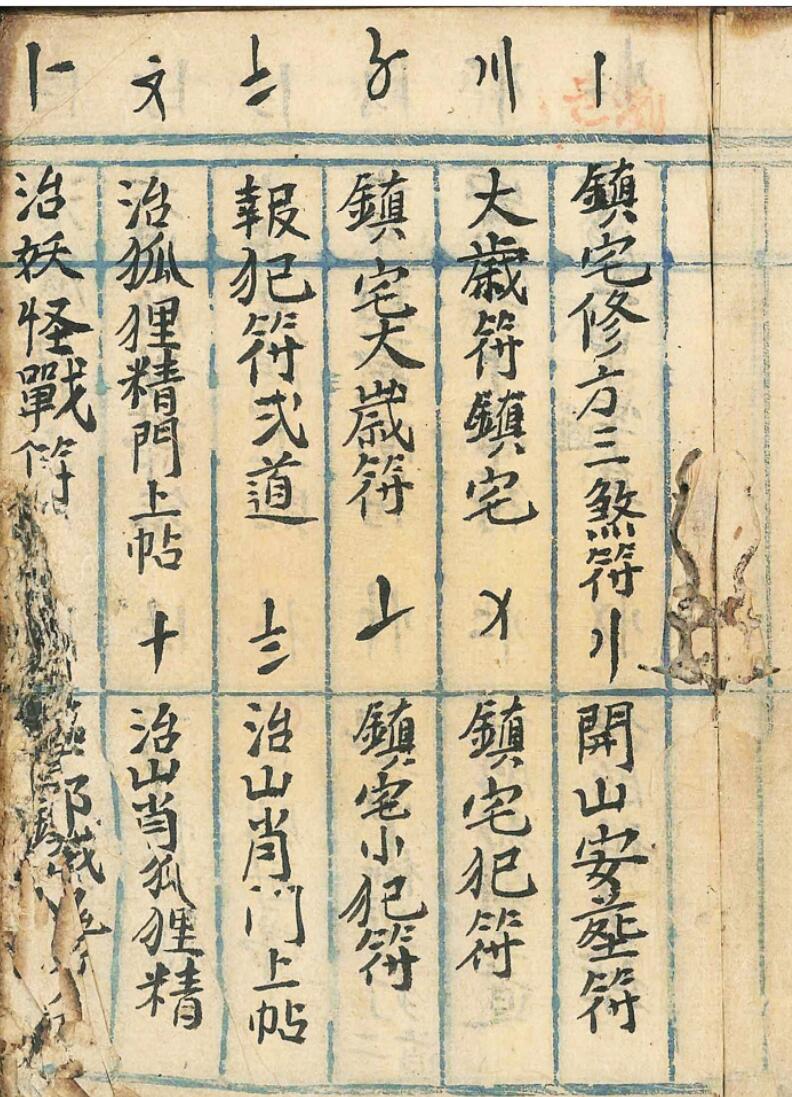 〡 鎮宅修方三煞符 〢 開山安塟符
〣 大歲符鎮宅 〤 鎮宅犯符
〥 鎮宅大歲符 〦 鎮宅小犯符
〧 報犯符弍道 〨 治山肖門上帖
〩 治狐狸精門上帖 十 治山肖狐狸精
卜 治妖怪戰符